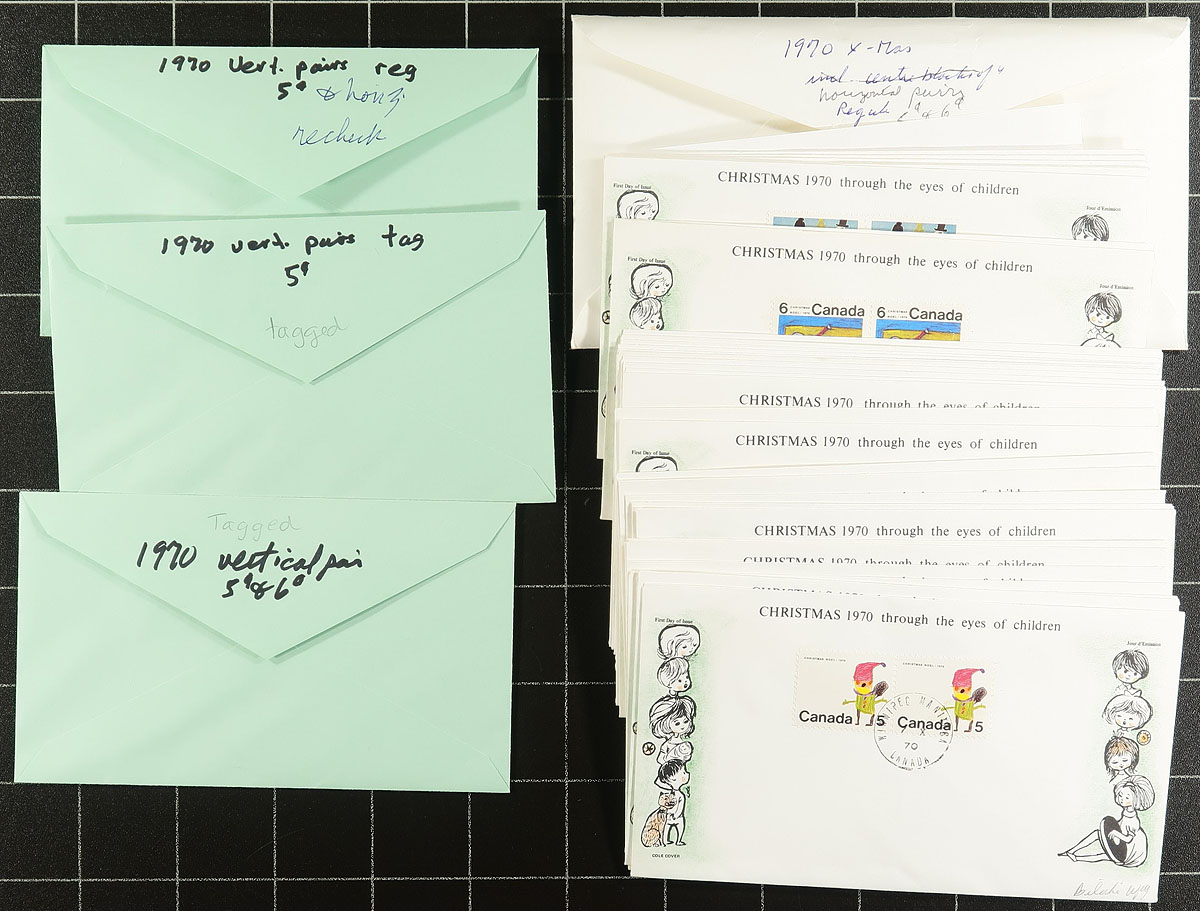 1970 vert. pairs reg
5¢ & horiz
recheck
1970 vert. pairs tag
5¢
tagged
Tagged
1970 vertical pair
5¢ & 6¢
1970 X-Mas
horizontal pairs
& 6¢
CHRISTMAS 1970 through the eyes of children
First Day of Issue
Jour d'Emission
CHRISTMAS 1970 through the eyes of children
First Day of Issue
Jour d'Emission
6 CHRISTMAS NOËL 1970 Canada 6 CHRISTMAS NOËL 1970 Canada
CHRISTMAS 1970 through the eyes of children
CHRISTMAS 1970 through the eyes of children
First Day of Issue
CHRISTMAS 1970 through the eyes of children
CHRISTMAS 1970 through the eyes of children
CHRISTMAS 1970 through the eyes of children
First Day of Issue
Jour d'Emission
CHRISTMAS NOËL 1970 CHRISTMAS NOËL 1970
Canada 5 Canada 5
WINNIPEG MANITOBA
7 X
70
CANADA
COLE COVER